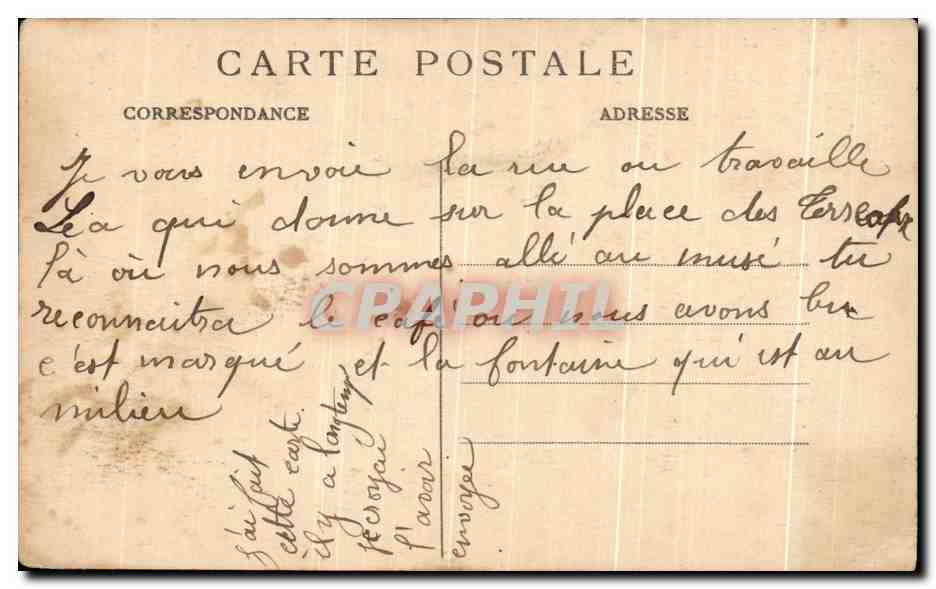 CARTE POSTALE
CORRESPONDANCE ADRESSE
Je vous envoie la rue ou travaille
Léa qui donne sur la place des Terreaux
là où nous sommes allé au musé tu
reconnaitra le café ou nous avons bu
c'est marqué et la fontaine qui est au
milieu
j'ai fait
cette carte
il y a longtemps
je croyai
l'avoir
envoyée
CPAPHIL